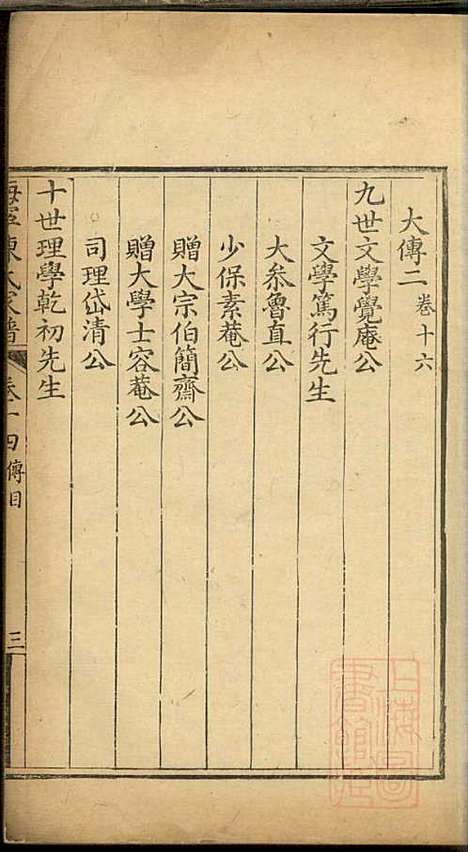 大傳二 卷十六
九世文學覺庵公
文學篤行先生
大叅魯直公
少保素菴公
贈大宗伯簡齋公
贈大學士容菴公
司理岱清公
十世理學乾初先生
海寧陳氏家譜 卷十四傳目 三
上海圖書館藏